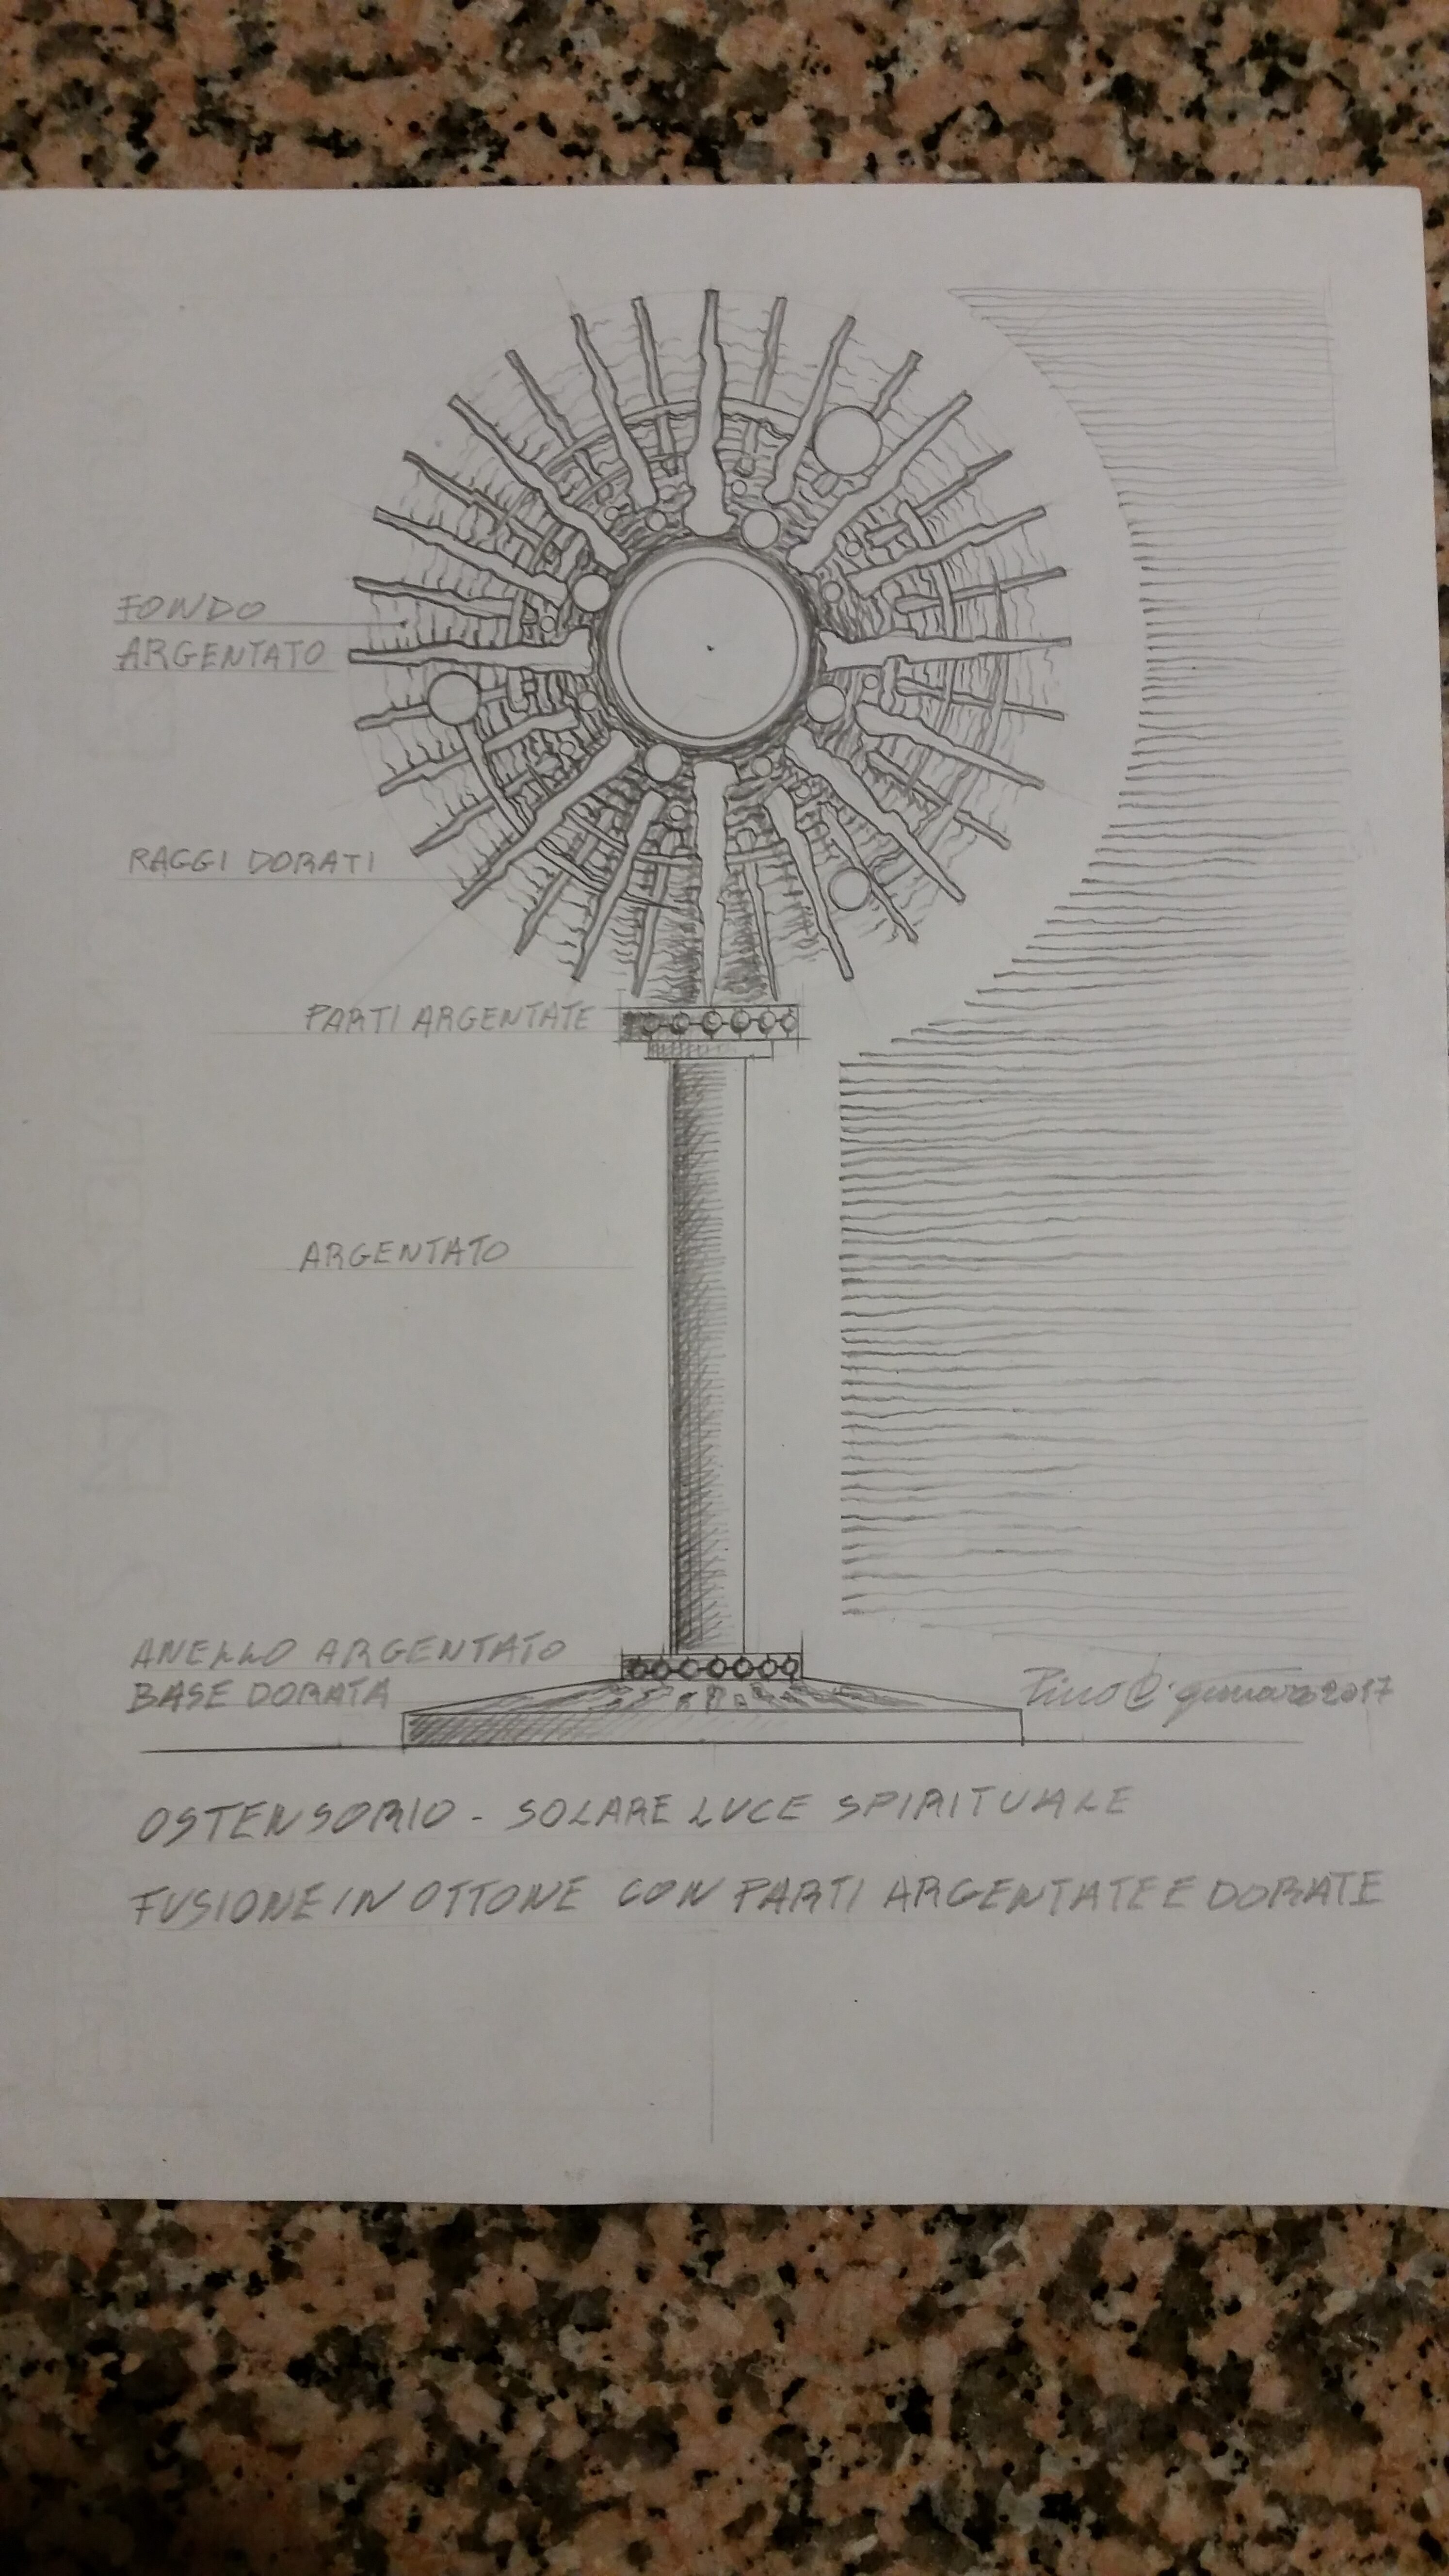 FONDO
ARGENTATO
RAGGI DORATI
PARTI ARGENTATE
ARGENTATO
ANELLO ARGENTATO
BASE DORATA
Pino gennaio 2017
OSTENSORIO - SOLARE LUCE SPIRITUALE
FUSIONE IN OTTONE CON PARTI ARGENTATE E DORATE